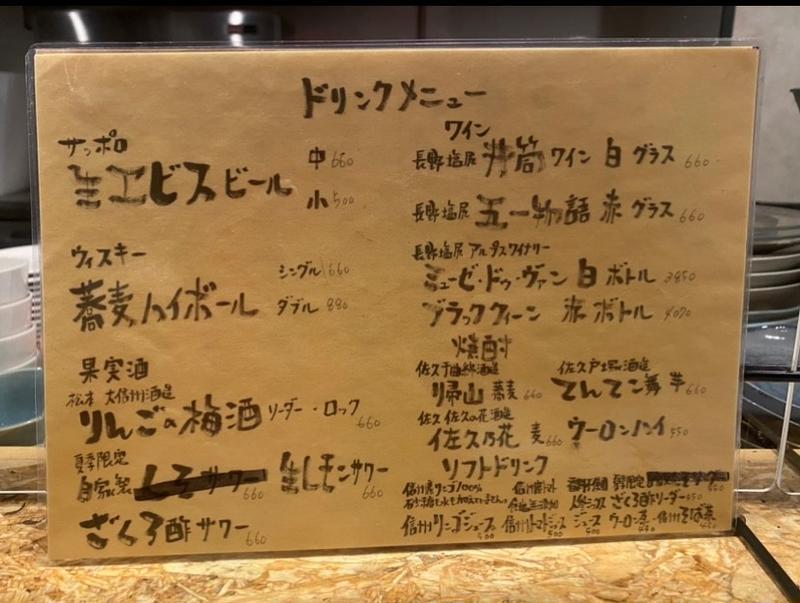 ドリンクメニュー
サッポロ
生ヱビスビール 中 660
小 500
ウィスキー
蕎麦ハイボール シングル 660
ダブル 880
果実酒
松本 大信州酒造
りんごの梅酒 ソーダー・ロック 660
夏季限定
自家製 しそサワー 660 生レモンサワー 660
ざくろ酢サワー 660
ワイン
長野塩尻 井筒ワイン 白 グラス 660
長野塩尻 五一物語 赤 グラス 660
長野塩尻 アルプスワイナリー
ミューゼ・ドゥ・ヴァン 白 ボトル 3850
ブラッククィーン 赤 ボトル 4070
焼酎
佐久千曲錦酒造 佐久戸塚酒造
帰山 蕎麦 660 てんてこ舞 芋 660
佐久 佐久の花酒造
佐久乃花 麦 660 ウーロンハイ 550
ソフトドリンク
信州産リンゴ100%
砂糖も水も加えていません。
信州リンゴジュース 500
信州産トマト
信州トマトジュース 500
人参ジュース 500
ざくろ酢ソーダー 450
ウーロン茶 450 信州そば茶 450